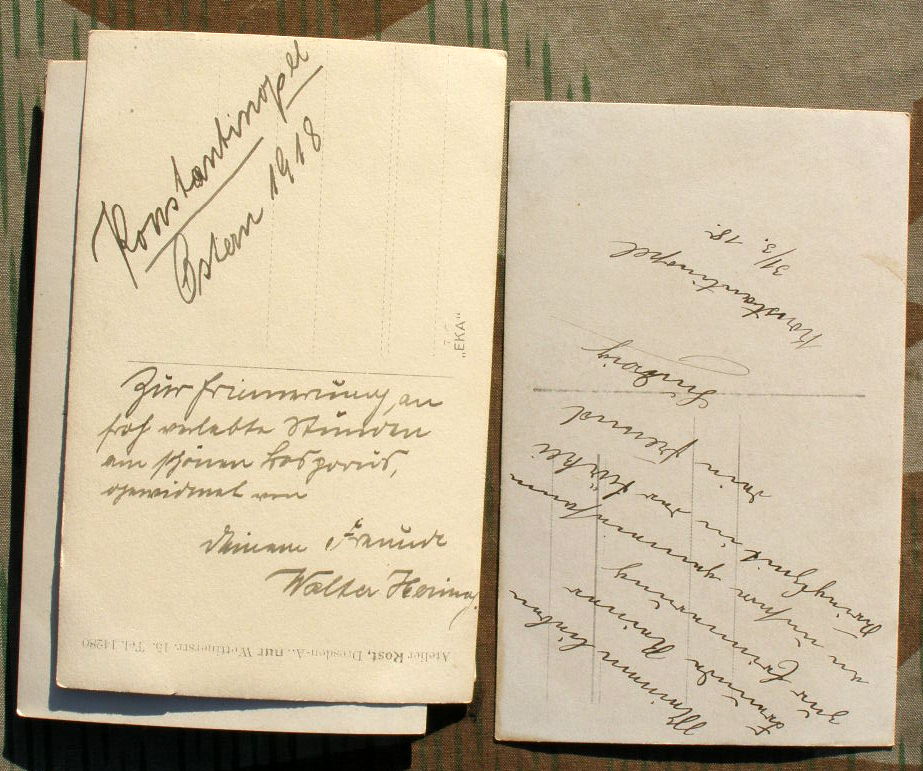 Konstantinopel
Ostern 1918
"EKA"
Zur Erinnerung an
froh verlebte Stunden
am schönen Bosporus,
gewidmet von
Deinem Freunde
Walter Hering
Atelier Rost, Dresden-A., nur Wettinerstr. 15. Tel. 14280
Konstantinopel
31/3. 18.
Meinem lieben
Freunde
zur Erinnerung
an unsere gemeinsame
Kriegszeit in der Türkei
Dein Freund
Ludwig